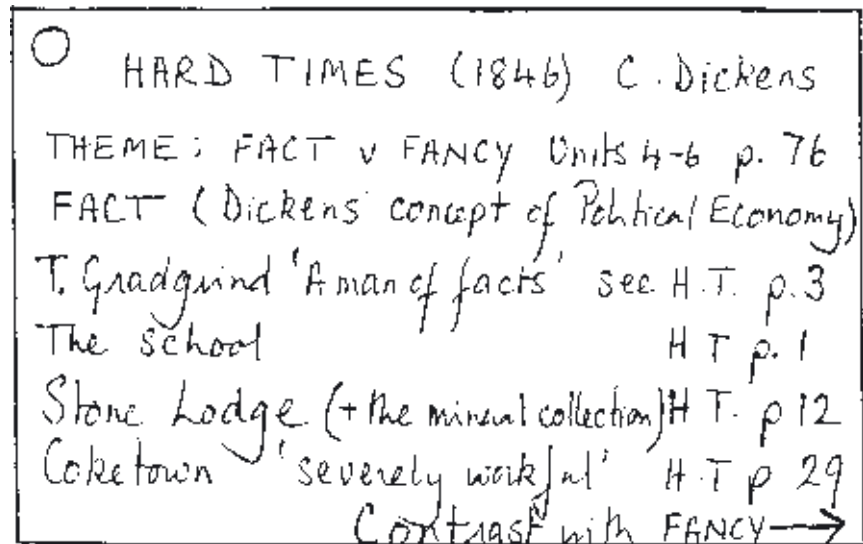 HARD TIMES (1846) C. Dickens
THEME: FACT v FANCY Units 4-6 p. 76
FACT (Dickens' concept of Political Economy)
T. Gradgrind 'A man of facts' see H.T. p.3
The school H T p. 1
Stone Lodge (+ the mineral collection) H T. p 12
Coketown 'severely workful' H.T p 29
Contrast with FANCY →